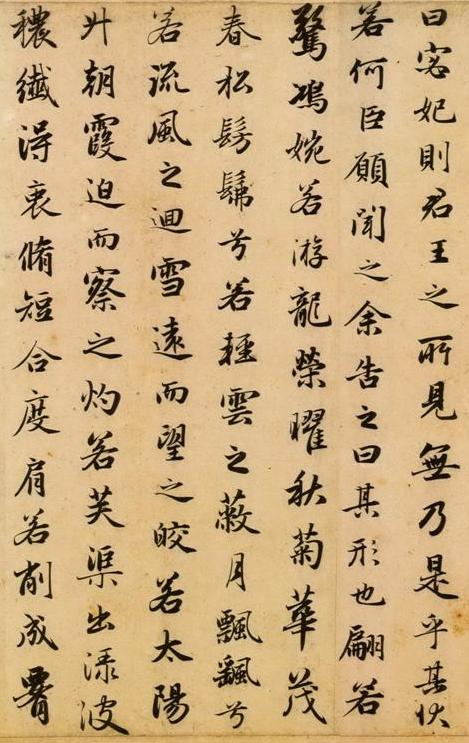 曰宓妃則君王之所見無乃是乎其狀
若何臣願聞之余告之曰其形也翩若
驚鴻婉若游龍榮曜秋菊華茂
春松髣髴兮若輕雲之蔽月飄颻兮
若流風之迴雪遠而望之皎若太陽
升朝霞迫而察之灼若芙渠出淥波
穠纖得衷脩短合度肩若削成腰